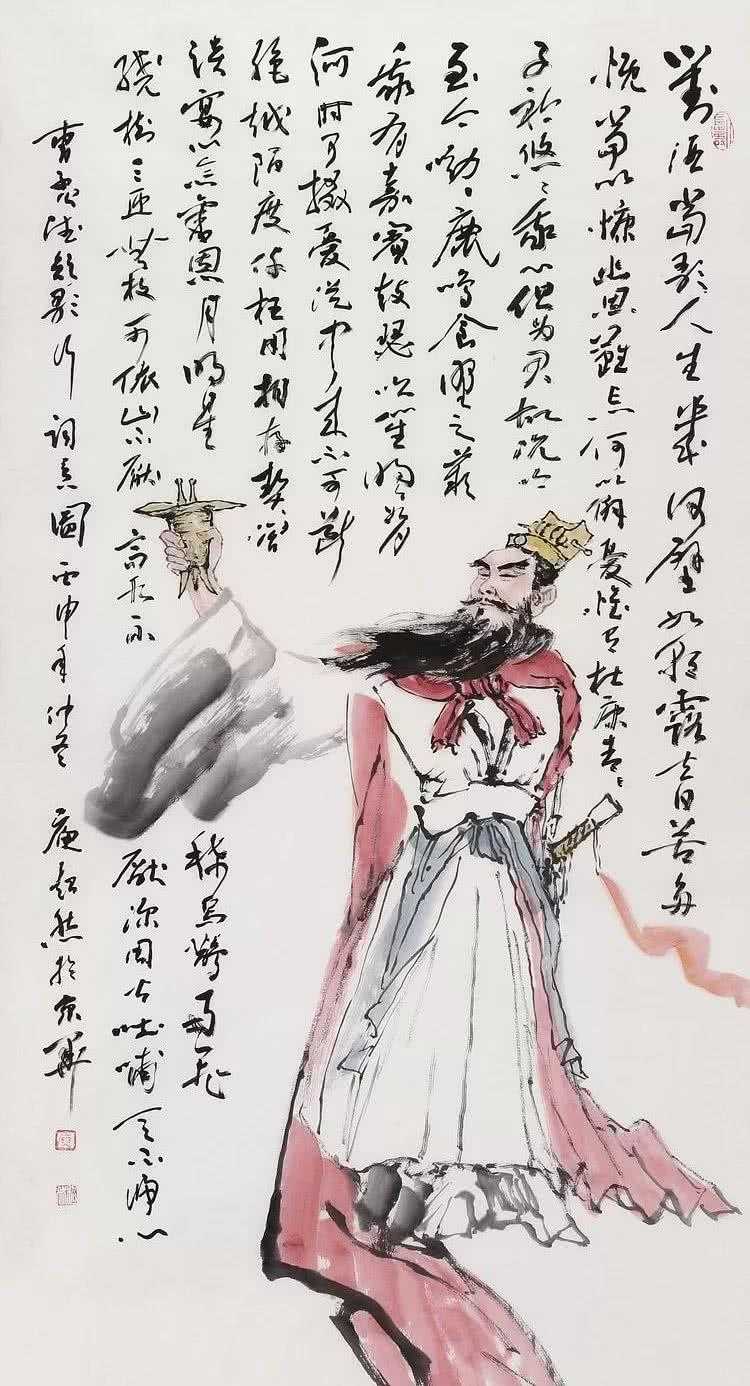 對酒當歌人生幾何譬如朝露去日苦多
慨當以慷幽思難忘何以解憂惟有杜康青々
子衿悠々我心但為君故沉吟
至今呦々鹿鳴食野之苹
我有嘉賓鼓瑟吹笙明々如月
何時可掇憂從中來不可斷
絕越陌度阡枉用相存契闊
談宴心念舊恩月明星
稀烏鵲南飛
繞樹三匝無枝可依山不厭
高 不
厭深周公吐哺天下歸心
曹孟德短歌行詞意圖丙申年仲 超然於京華